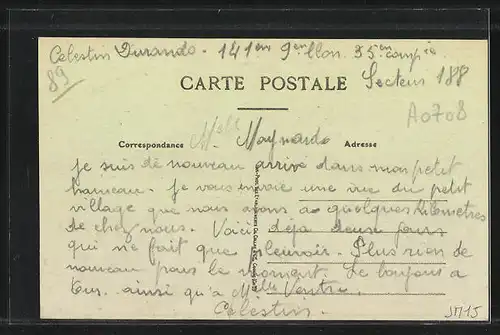 Celestin Durando - 141em 9en 35em compie
89
CARTE POSTALE
Secteur 188
A0708
Correspondance
Melle Maynardo
Adresse
Je suis de nouveau arrivé dans mon petit
hameau. Je vous envoie une vue du petit
village que nous avons a quelques kilometres
de chez nous. Voici déjà deux jours
qui ne fait que pleuvoir. Plus rien de
nouveau pour le moment. Le bonjour a
tous. ainsi qu'a Melle
Celestin.